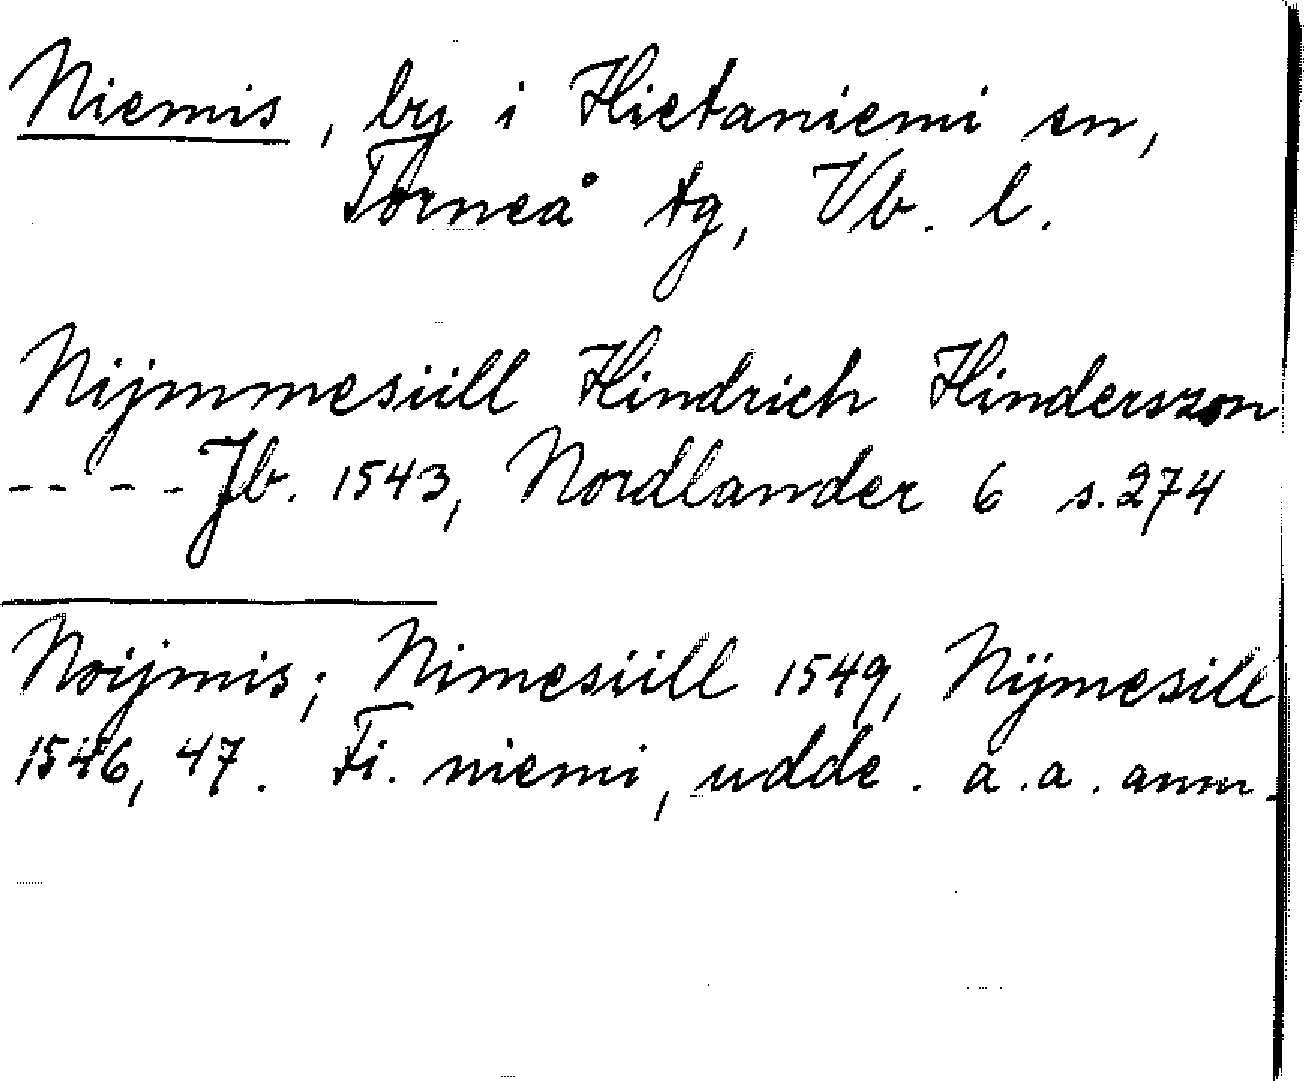 Niemis, by i Hietaniemi sn,
Torneå tg, Vb. l.
Nijmmesiill Hindrich Hinderszon
- - - - Jb. 1543, Nordlander 6 s. 274
Noijmis; Nimesiill 1549, Nijmesill
1546, 47. Fi. niemi, udde. a.a. anm.